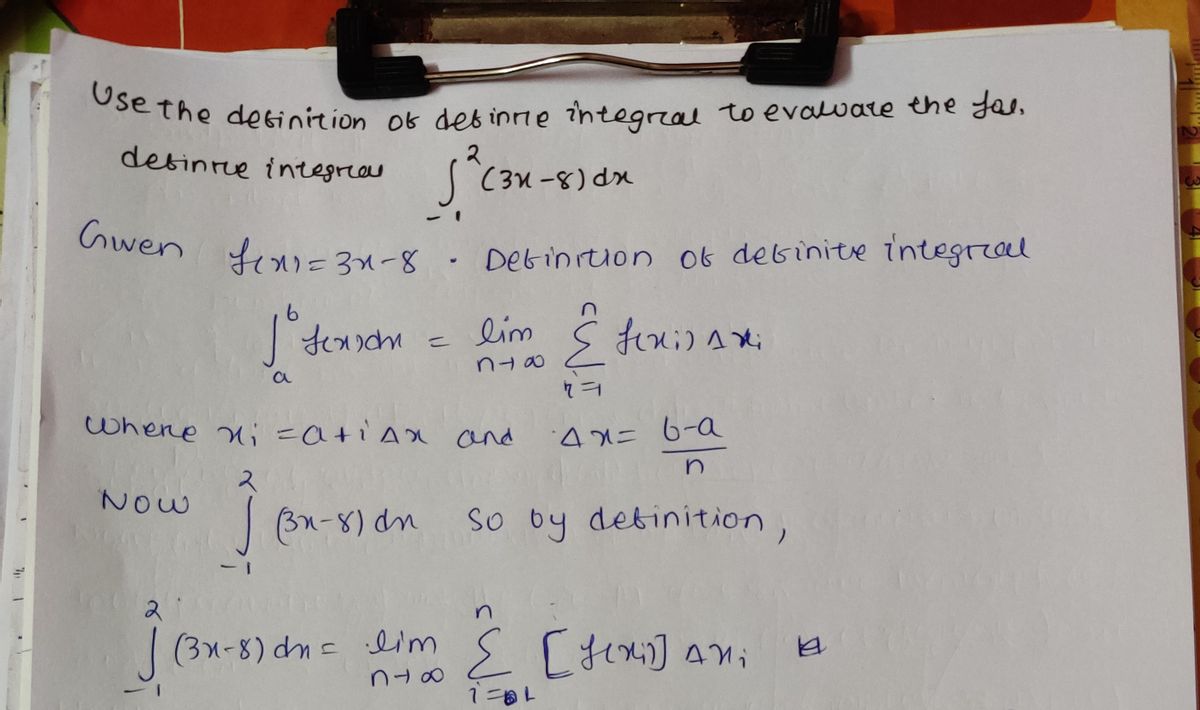 Use the definition of definite integral to evaluate the fol.
definite integral ∫₋₁² (3x-8) dx
Given f(x) = 3x-8 . Definition of definite integral
∫ₐᵇ f(x)dx = lim n→∞ Σ i=1 n f(xi) Δxi
where xi = a+iΔx and Δx = b-a/n
Now ∫₋₁² (3x-8) dx so by definition,
∫₋₁² (3x-8) dx = lim n→∞ Σ i=1 n [f(xi)] Δxi